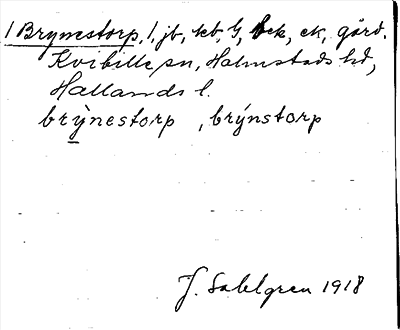 1 Brynestorp, 1, jb, kb, G, bek, ek, gård.
Kvibille sn, Halmstads hd,
Hallands l.
brỳnestorp , brýnstorp
J. Sahlgren 1918